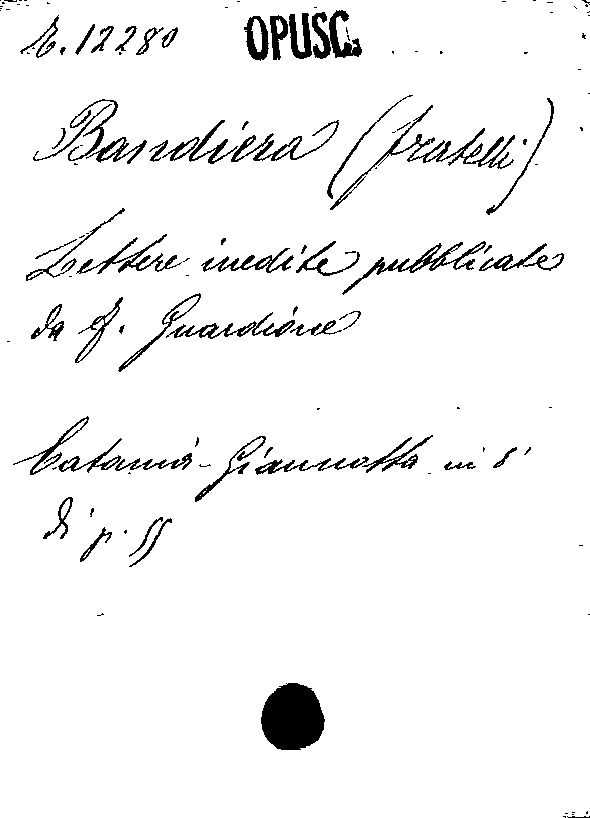 E. 12280 OPUSC.
Bandiera (fratelli)
Lettere inedite pubblicate
da F. Guardione
Catania - Giannotta in 8°
di p. 55